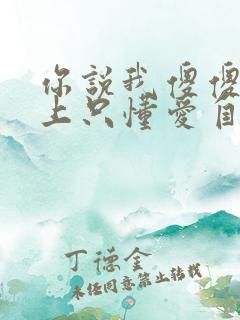 你說我傻傻
上只懂愛自
丁德金
未经同意禁止转载